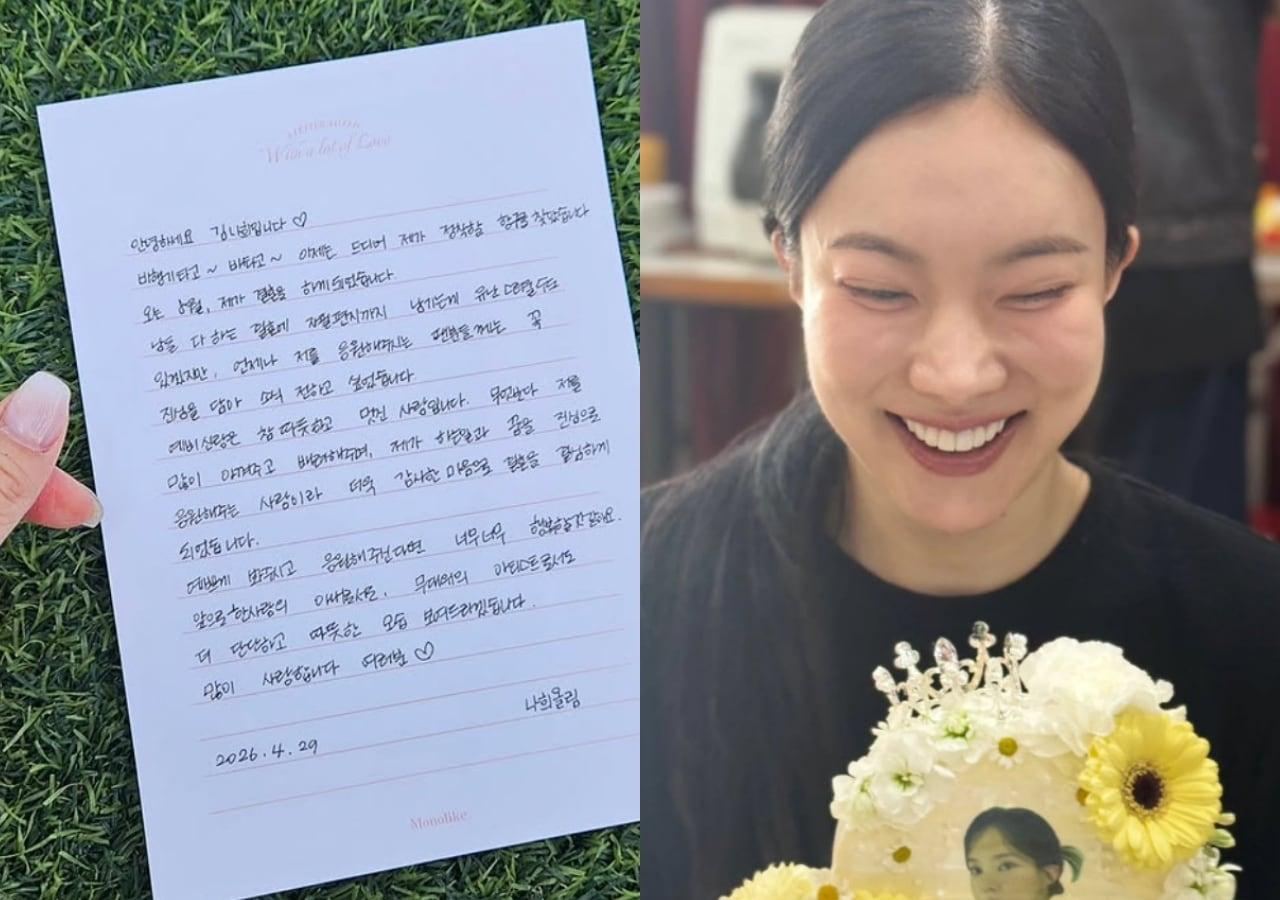 With a lot of Love
안녕하세요 김나희입니다 ♡
비행기타고 ~ 바타고 ~ 이제는 드디어 제가 정착할 항구를 찾았습니다
오는 9월, 제가 결혼을 하게 되었습니다.
남들 다 하는 결혼에 자필편지까지 남기는게 유난스러울수도
있겠지만, 언제나 저를 응원해주시는 팬분들께는 꼭
진심을 담아 소식 전하고 싶었습니다
예비신랑은 참 따뜻하고 멋진 사람입니다. 무엇보다 저를
많이 아껴주고 배려해주며, 제가 하는일과 꿈을 진심으로
응원해주는 사람이라 더욱 감사한 마음으로 결혼을 결심하게
되었습니다.
예쁘게 봐주시고 응원해주신다면 너무너무 행복할것같아요.
앞으로 한사람의 아내로서도, 무대위의 아티스트로서도
더 단단하고 따뜻한 모습 보여드리겠습니다.
많이 사랑합니다 여러분 ♡
나희올림
2026.4.29
Monolike